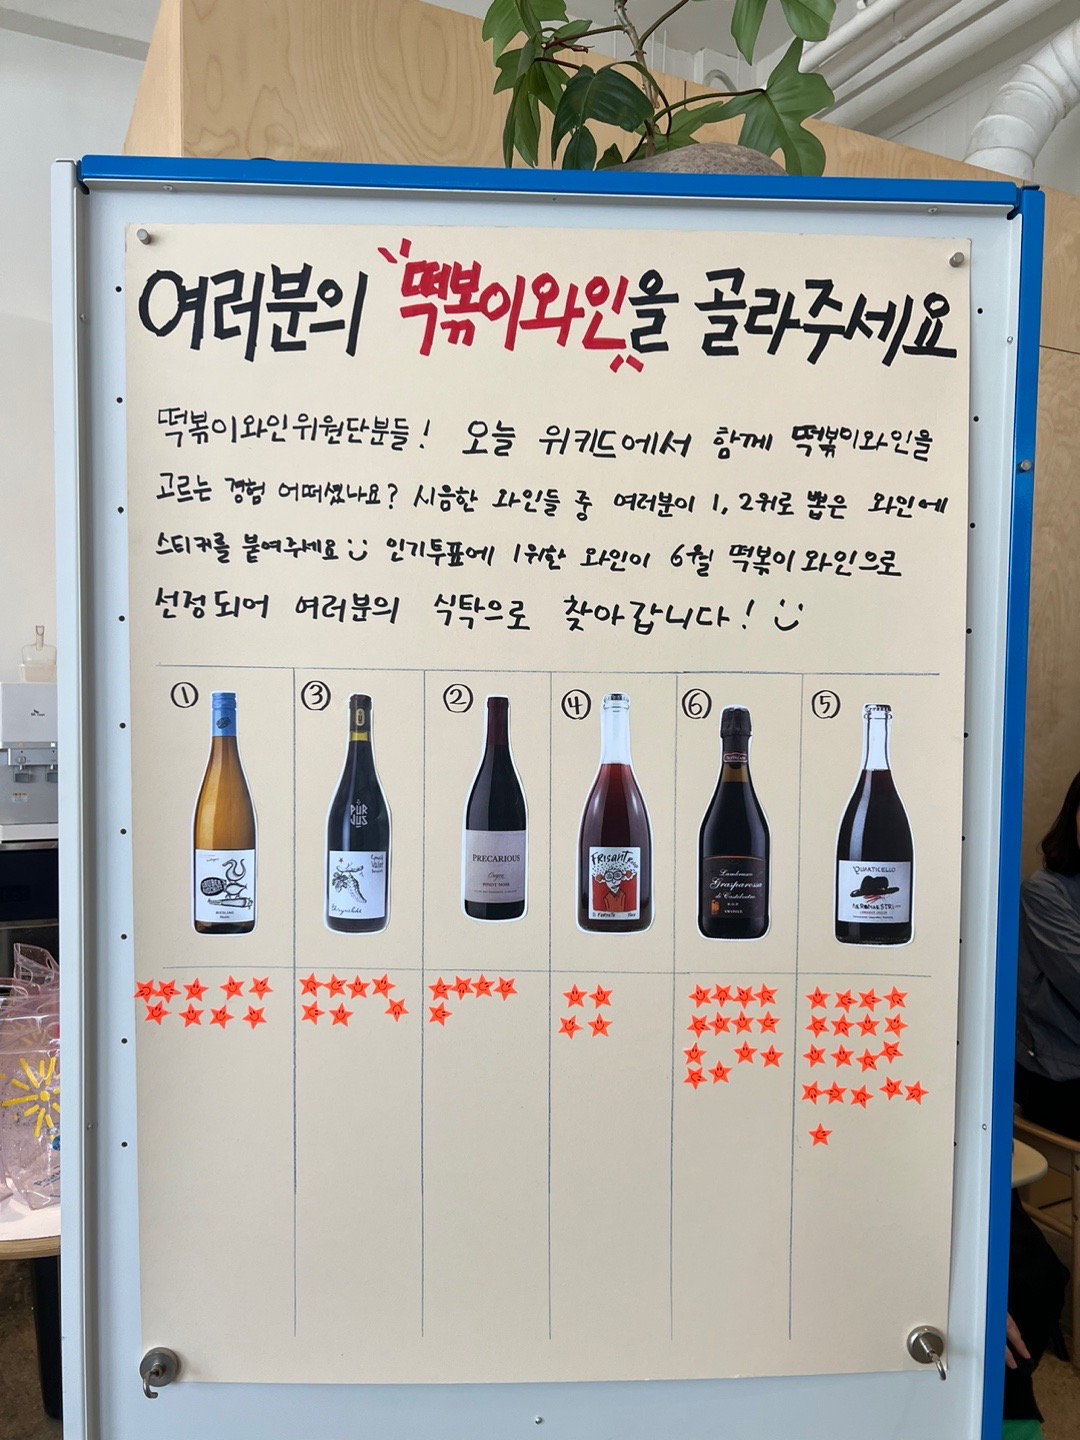 여러분의 "떡볶이와인"을 골라주세요
떡볶이와인위원단분들! 오늘 위키드에서 함께 떡볶이와인을
고르는 경험 어떠셨나요? 시음한 와인들 중 여러분이 1, 2위로 뽑은 와인에
스티커를 붙여주세요 인기투표에 1위한 와인이 6월 떡볶이 와인으로
선정되어 여러분의 식탁으로 찾아갑니다!
① ③ ② ④ ⑥ ⑤
RIESLING
PUR
JUS
PRECARIOUS
PINOT NOIR
FRISANT
Lambrusco
Grasparossa
di Castelvetro
AMABILE
QUATICELLO